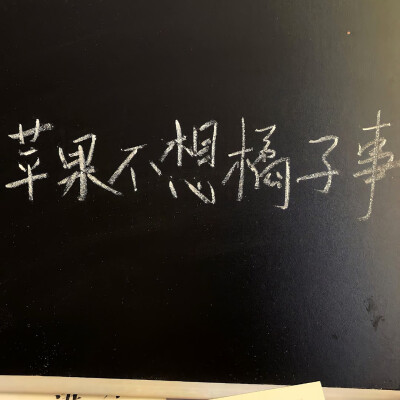 苹果不想橘子事